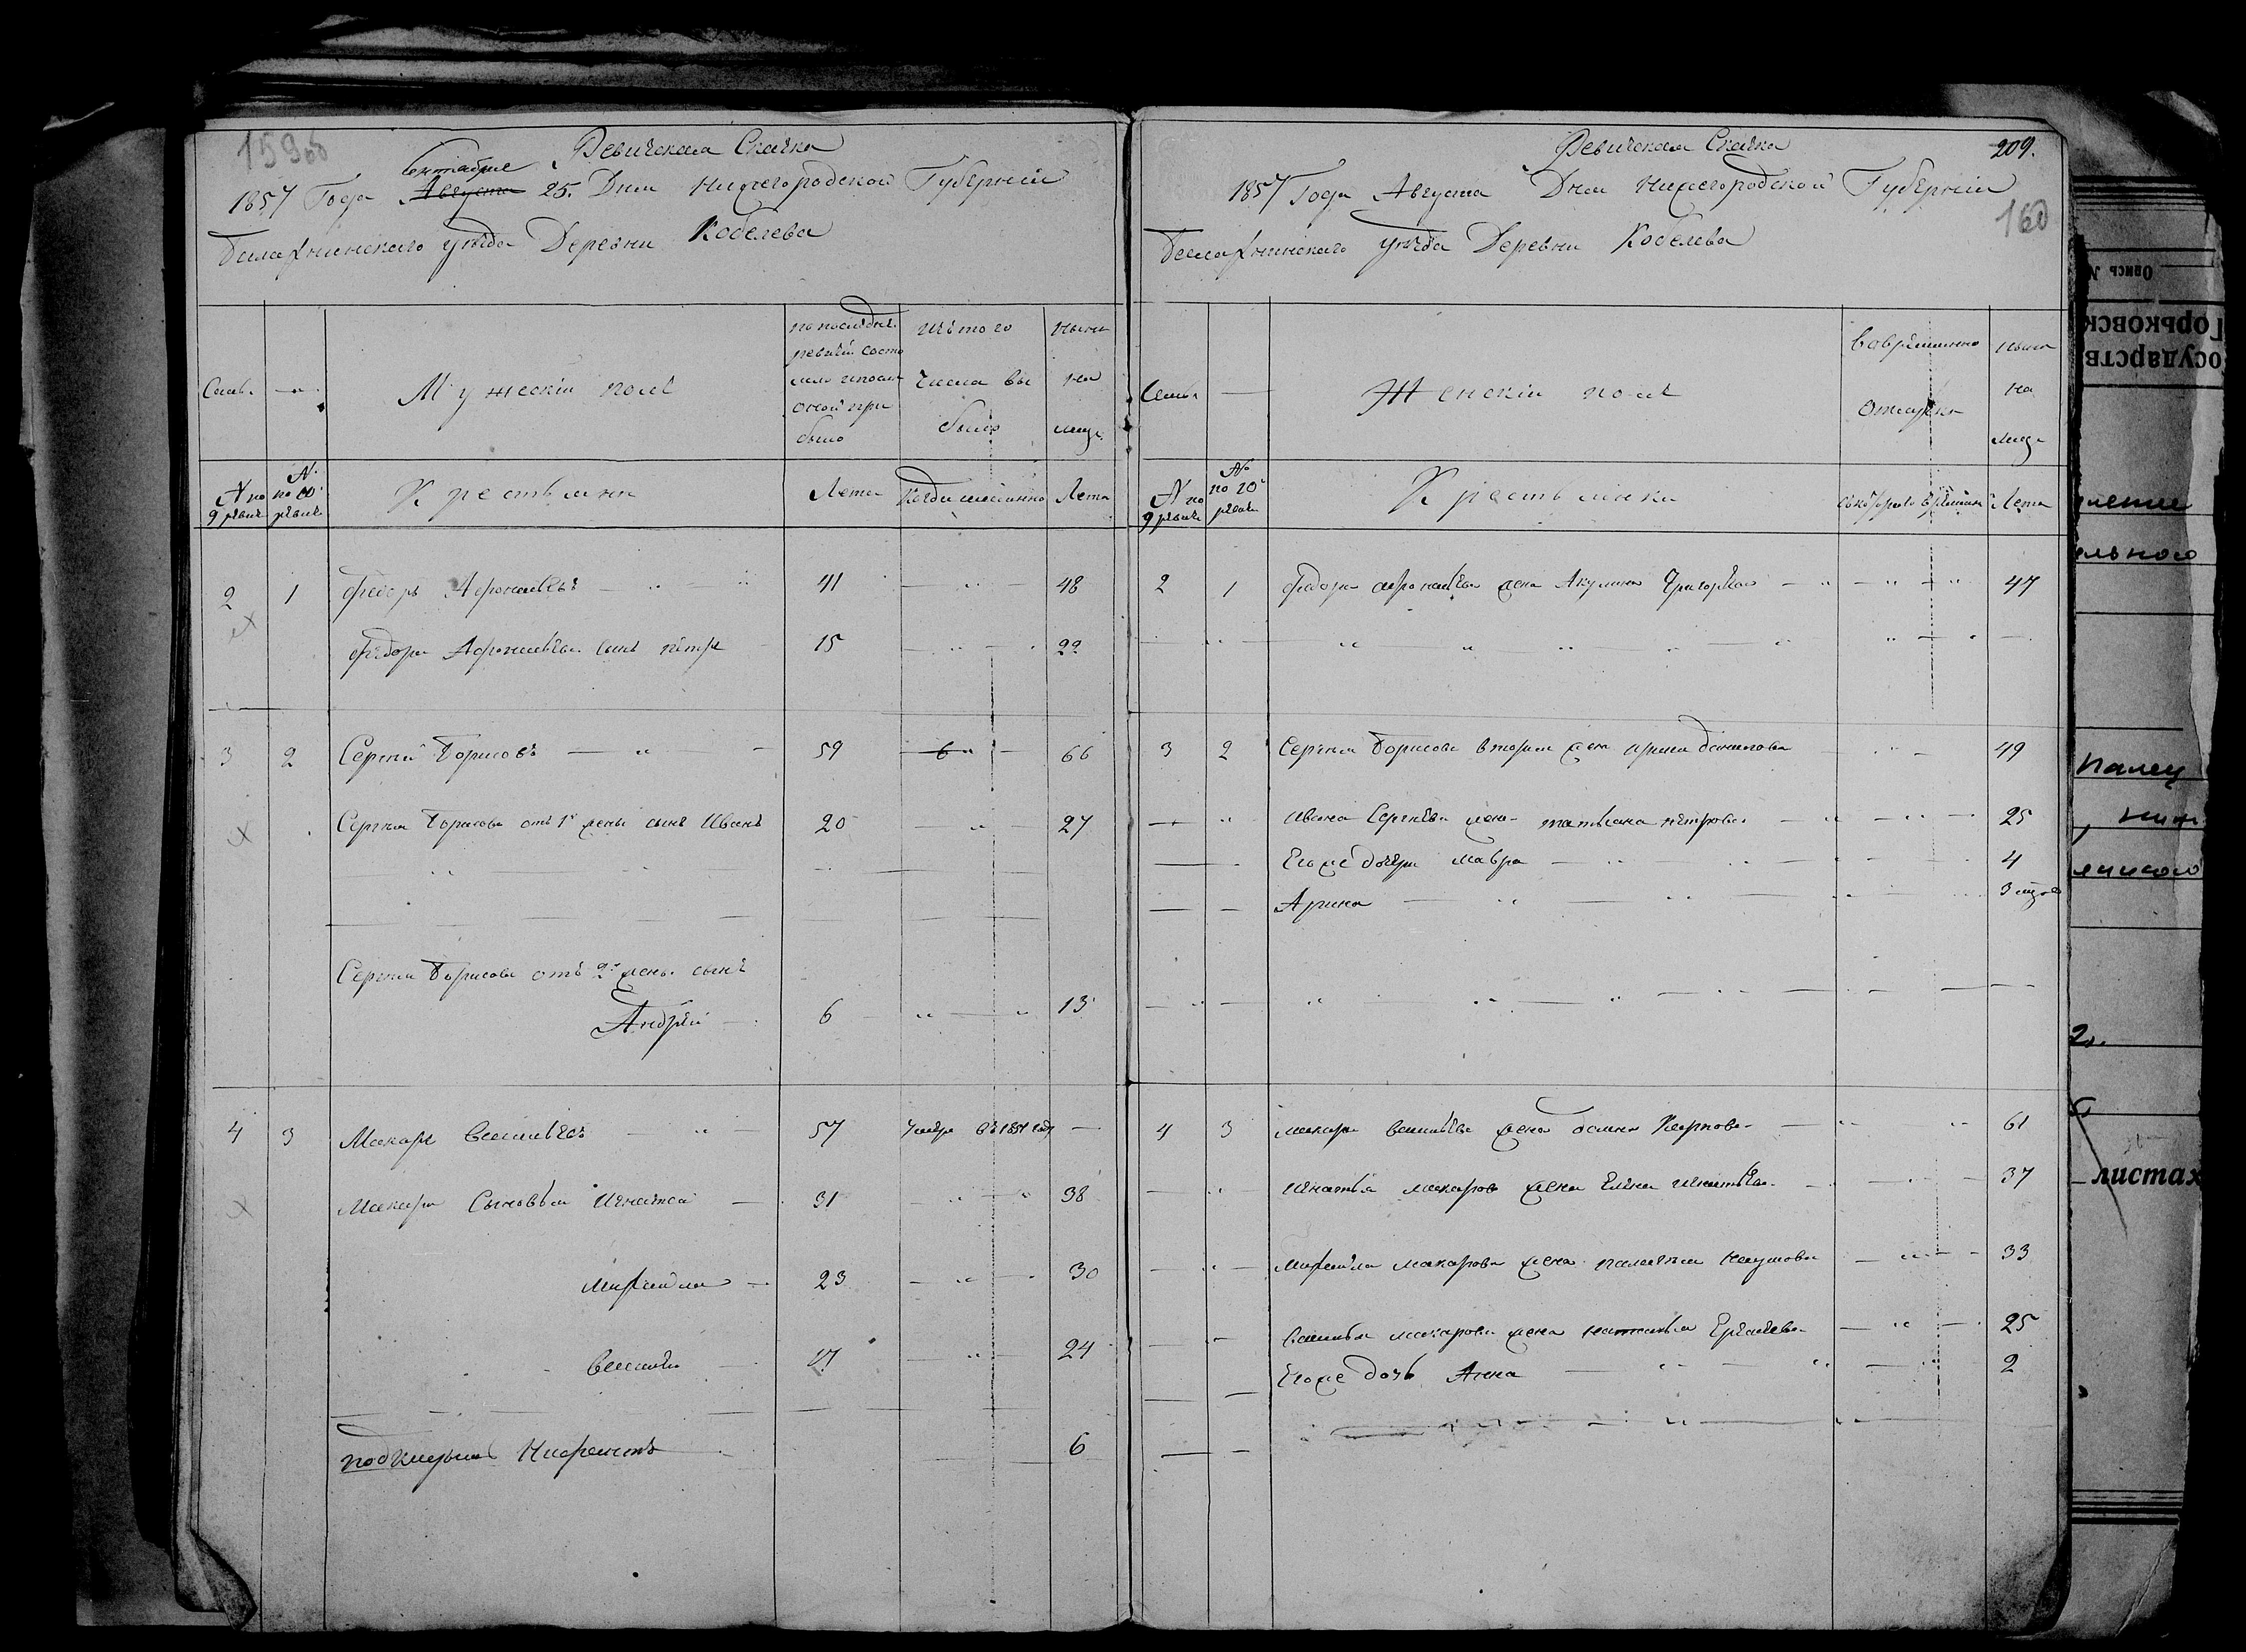 159об
Ревижская Скаска
Сентября
1857 Года Августа 25. Дня Нижегородской Губернии
Балахнинскаго уѣзда Деревни Кобелева
Семьи
Мужескій полъ
по послѣдней
ревизіи состо
яло и после
оной при
было
изъ того
числа вы
было
нынѣ
на
лицо
№ по 9 ревизіи
№ по 10й ревизіи
Крестьяне
Лета
Когда именно
Лета
2 1 Федоръ Афонасьевъ 41 48
Федора Афонасьева сынъ Петръ 15 22
3 2 Сергей Борисовъ 59 6 66
Сергея Борисова отъ 1й жены сынъ Иванъ 20 27
Сергея Борисова отъ 2й жены сынъ
Андрей 6 13
4 3 Макаръ Васильевъ 57 Умеръ въ 1851 году
Макара Сыновья Игнатей 31 38
Михайла 23 30
Василей 17 24
подкидышъ 6
209.
160
Ревижская Скаска
1857 Года Августа Дня Нижегородской Губерніи
Балахнинскаго уѣзда Деревни Кобелева
Семьи
Женскій полъ
во временно
отлучке
ныне
на
лицо
№ по 9 ревизіи
№ по 10й ревизіи
Крестьянки
съ котораго времени
Лета
2 1 Федора Афонасьева жена Акулина Григорьева 47
3 2 Сергея Борисова вторая жена Арина Данилова 49
Ивана Сергеева жена Татьяна Петрова 25
Его же дочери Мавра 4
Арина 3
4 3 Макара Васильева жена Карпова 61
Игнатья Макарова жена Елена Игнатьева 37
Михайла Макарова жена Наумова 33
Василья Макарова жена Наталья 25
Его же дочь Анна 2
Опись №
Горьковск
осударств
листах